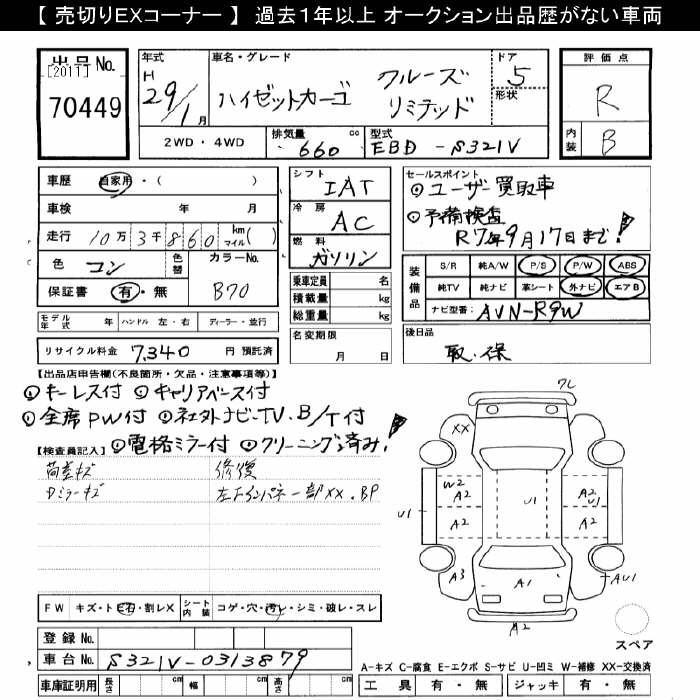 【 売切りEXコーナー 】 過去1年以上 オークション出品歴がない車両
出品No.
[2011]
70449
年式
H
29/1月
車名・グレード
ハイゼットカーゴ クルーズ リミテッド
ドア
5
形状
2WD・4WD
排気量
660 cc
型式
EBD-S321V
評価点
R
内装
B
車歴 自家用・( )
車検 年 月
走行 10万3千860 km マイル( )
色 コン 色替 カラーNo.
保証書 有・無 B70
モデル年式 年 ハンドル 左・右 ディーラー・並行
リサイクル料金 7,340 円 預託済
シフト
IAT
冷房
AC
燃料
ガソリン
乗車定員 名
積載量 kg
総重量 kg
名変期限
月 日
セールスポイント
◎ユーザー買取車
◎予備検査
R7年9月17日まで!
装備品
S/R 純A/W P/S P/W ABS
純TV 純ナビ 革シート 外ナビ エアB
ナビ型番 AVN-R9W
後日品
取.保
【出品店申告欄(不良箇所・欠品・注意事項等)】
◎キーレス付 ◎キャリアベース付
◎全席PW付 ◎社外ナビ.TV.B/T付
◎電格ミラー付 ◎クリーニング済み!
【検査員記入】
荷室キズ
Dミラーキズ
修復
左Fインパネ一部XX.BP
7L
XX
W2
A2
A2
U1
U1
A2
U1
A2
A3
A1
AU1
A2
スペア
FW キズ・ト・石・割レX シート内装 コゲ・穴・汚レ・シミ・破レ・スレ
登録No.
車台No. S321V-0313879
車庫証明用 長さ cm 幅 cm 高さ cm
A-キズ C-腐食 E-エクボ S-サビ U-凹ミ W-補修 XX-交換済
工具 有・無 ジャッキ 有・無